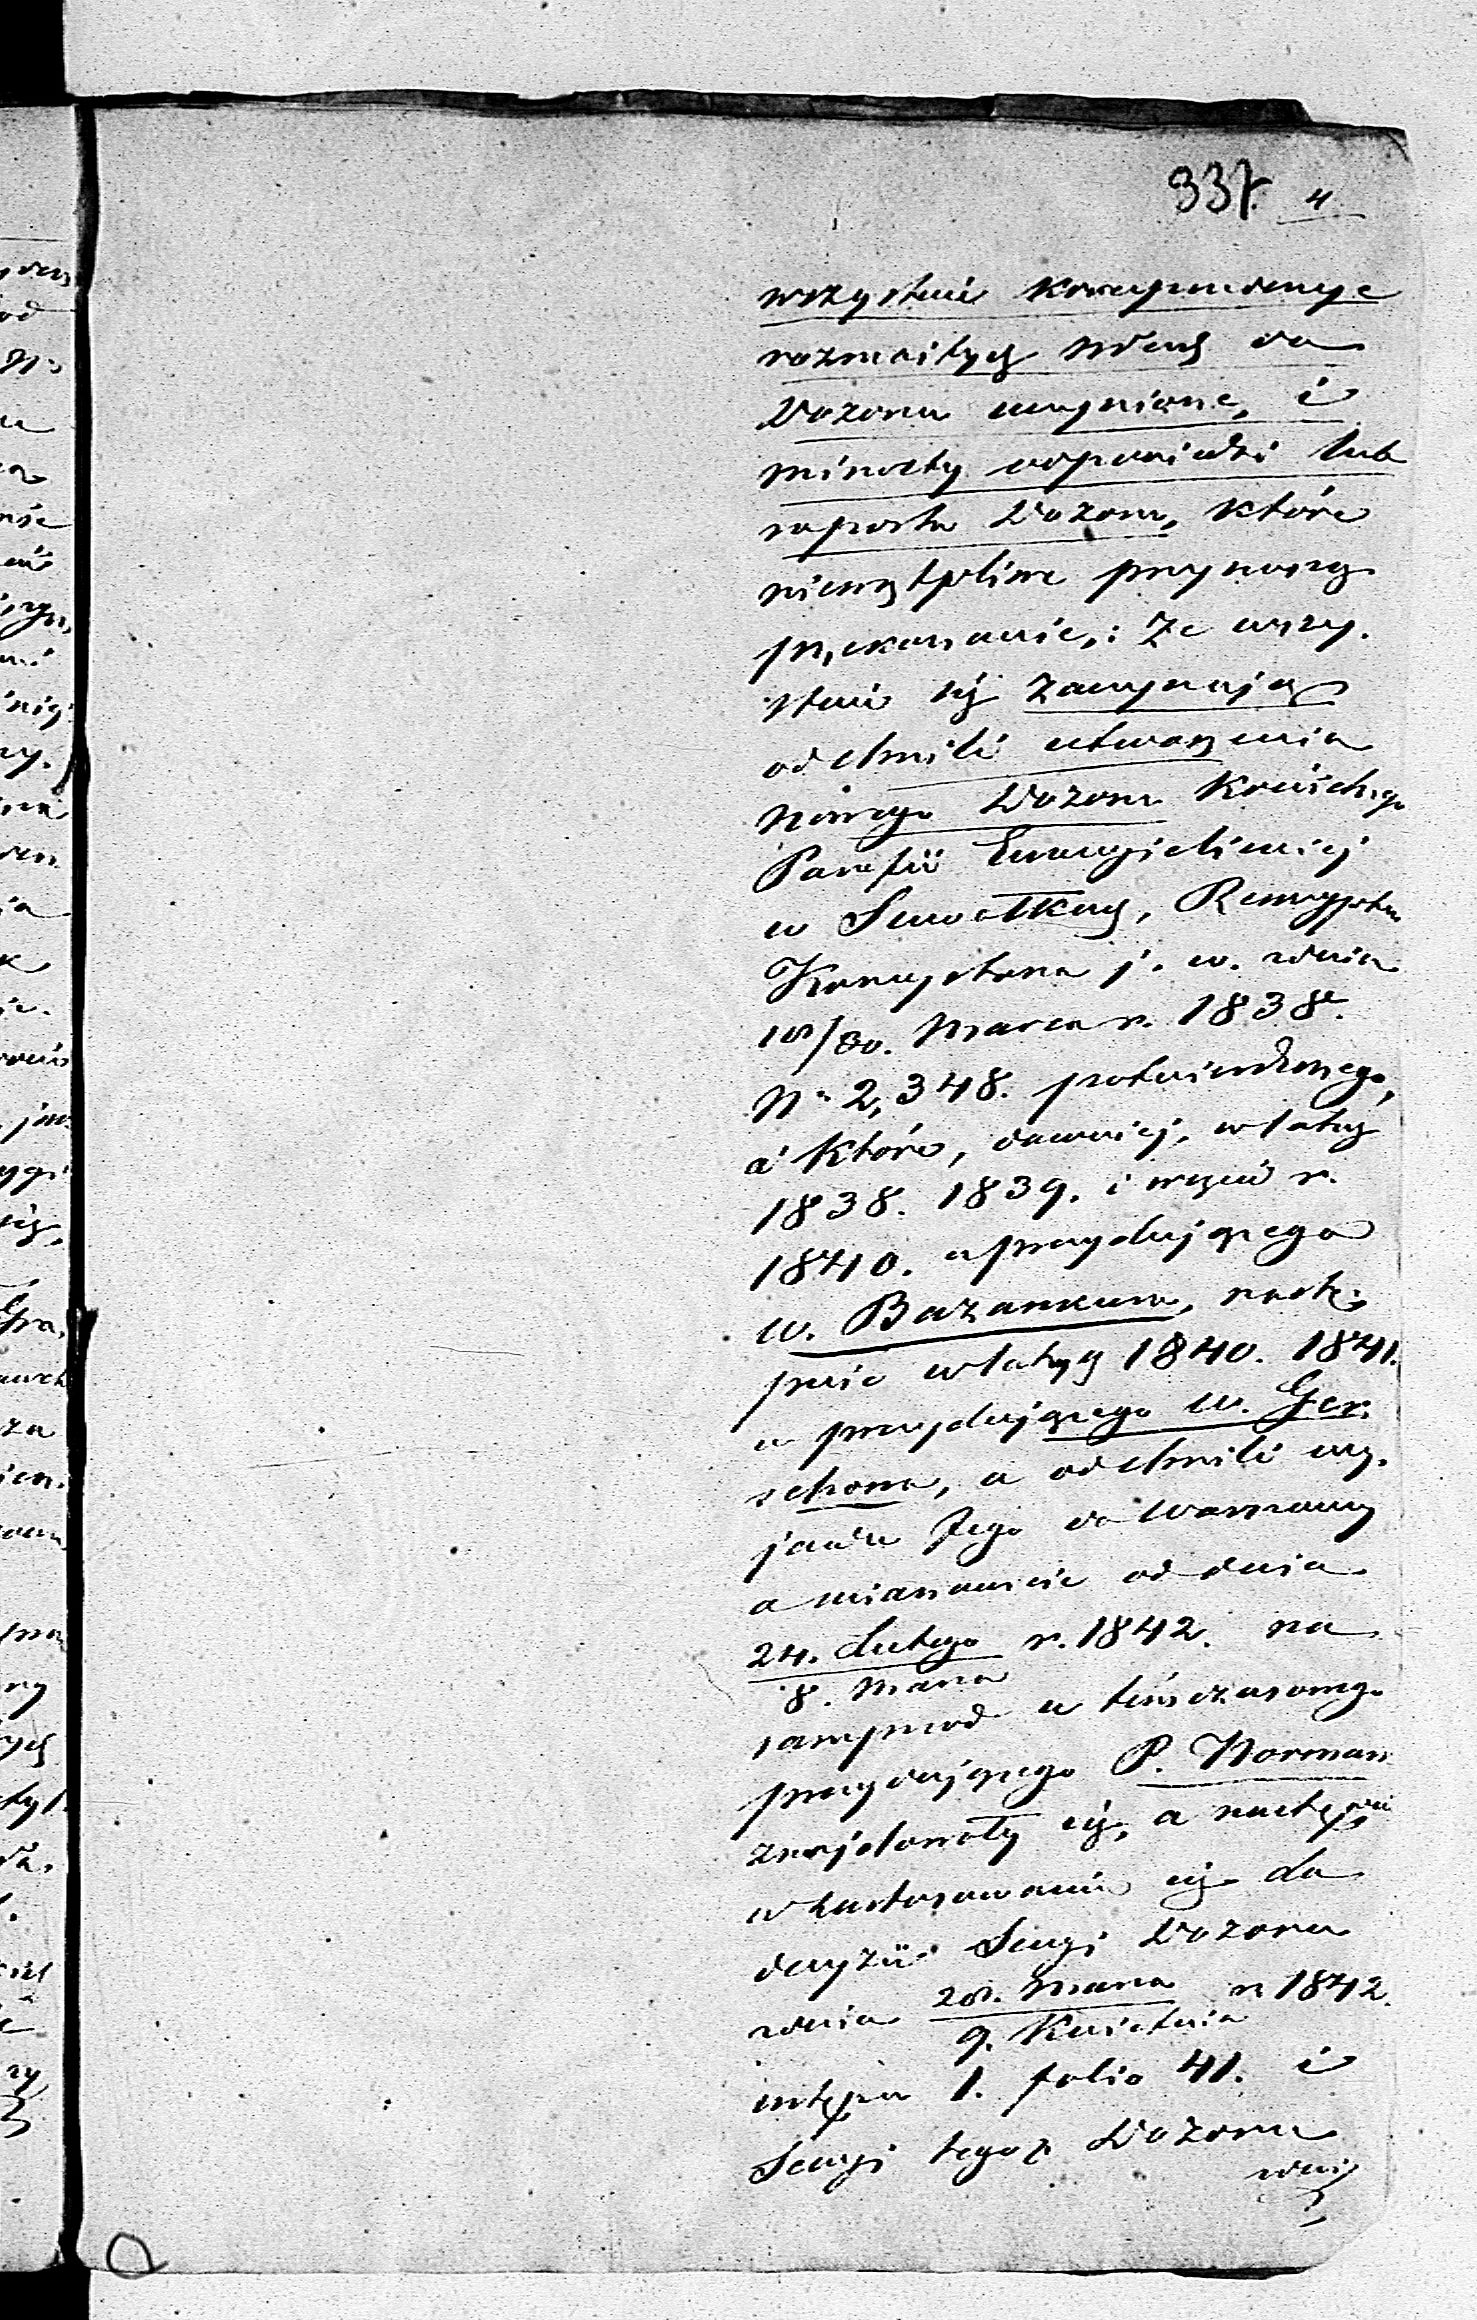 337. 4
wszystkie korespondencye
rozmaitych Władz do
Dozoru uczynione, i
minuty odpowiedzi lub
raporta Dozoru, które
niewątpliwe przynoszą
przekonanie,: że wszy-
stkie się zaczynają
od chwili utworzenia
nowego Dozoru Kościelnego
Parafii Ewangielickiej
w Suwałkach, Reskryptem
Konsystorza j. w. dnia
18/30. Marca r. 1838.
No 2,348. potwierdzonego,
a które, dawniej, w latach
1838. 1839. i części r.
1840. u prezydującego
W. Bazankura, nastę-
pnie w latach 1840. 1841.
u prezydującego W. Ger-
schona, a od chwili wy-
jazdu Jego do Warszawy
a mianowicie od dnia
24. Lutego r. 1842. na
8. Marca
samprzód u tymczasowego
prezydującego P. Norman
znajdowały się, a następnie
w zastosowaniu się do
decyzii Sessyi Dozoru
dnia 28. Marca r. 1842.
9. Kwietnia
ustępu 1. folio 41. i
Sessyi tegoż Dozoru
dnia